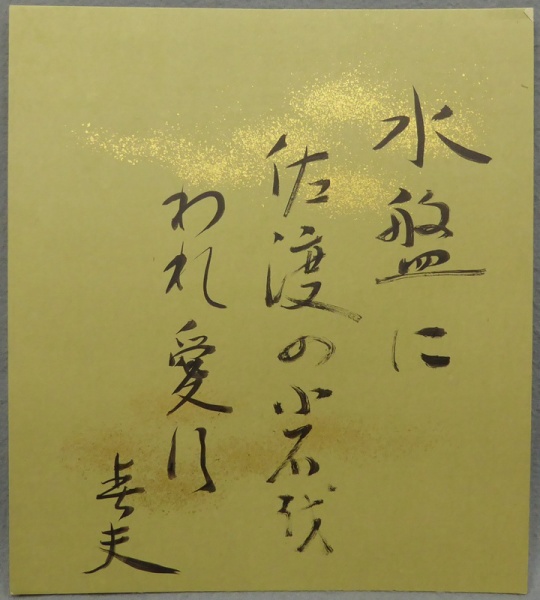 水盤に
佐渡の小石越
われ愛す
春夫